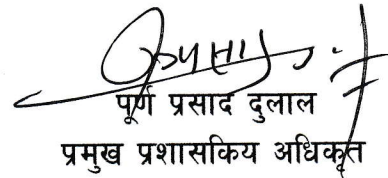 पूर्ण प्रसाद दुलाल
प्रमुख प्रशासकिय अधिकृत